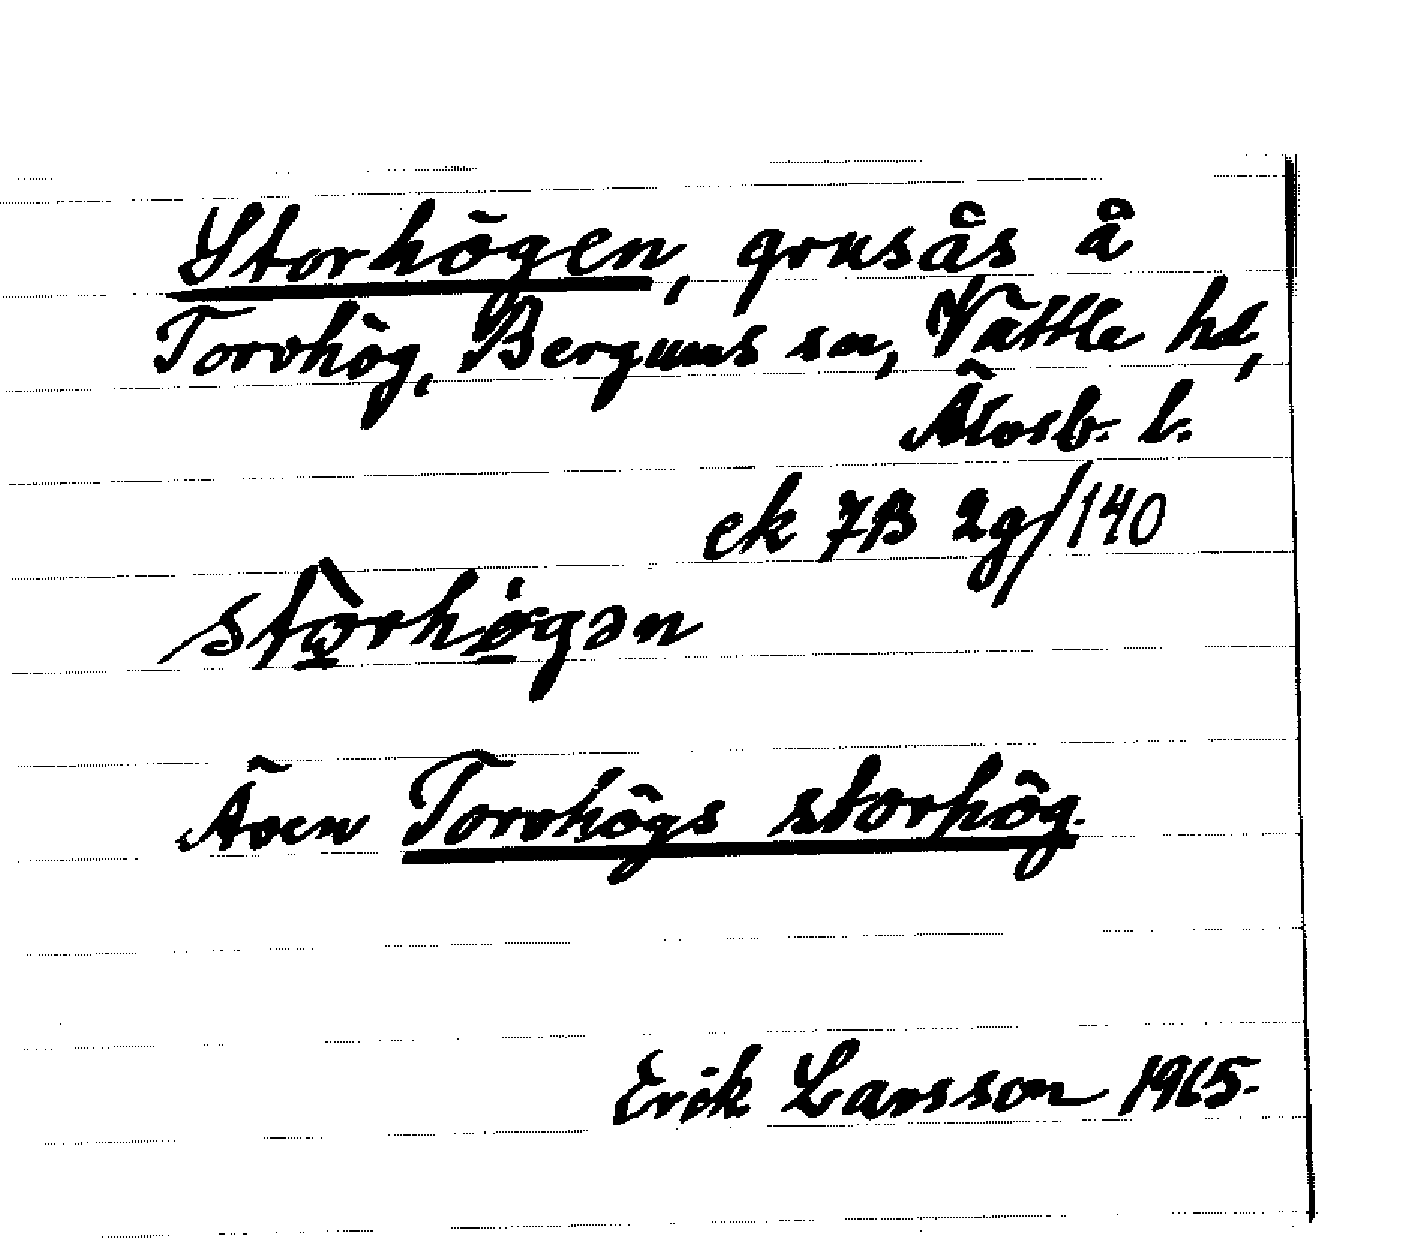 Storhögen, grusås å
Torvhög, Bergums sn, Vättle hd,
Älvsb. l.
ek 7B 2g/140
Även Torvhögs storhög.
Erik Larsson 1965.